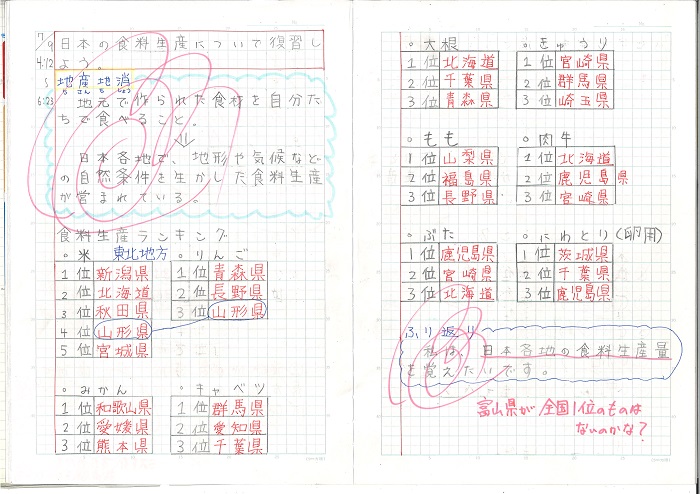 7/9 日本の食料生産について復習し
4:12 よう。
地産地消
ち さん ち しょう
6:23 地元で作られた食材を自分た
ちで食べること。
⇓
日本各地で、地形や気候など
の自然条件を生かした食料生産
が営まれている。
食料生産ランキング
○米 東北地方
1位 新潟県
2位 北海道
3位 秋田県
4位 山形県
5位 宮城県
○りんご
1位 青森県
2位 長野県
3位 山形県
○みかん
1位 和歌山県
2位 愛媛県
3位 熊本県
○キャベツ
1位 群馬県
2位 愛知県
3位 千葉県
○大根
1位 北海道
2位 千葉県
3位 青森県
○きゅうり
1位 宮崎県
2位 群馬県
3位 埼玉県
○もも
1位 山梨県
2位 福島県
3位 長野県
○肉牛
1位 北海道
2位 鹿児島県
3位 宮崎県
○ぶた
1位 鹿児島県
2位 宮崎県
3位 北海道
○にわとり(卵用)
1位 茨城県
2位 千葉県
3位 鹿児島県
ふり返り
私は、日本各地の食料生産量
を覚えたいです。
富山県が全国1位のものは
ないのかな?